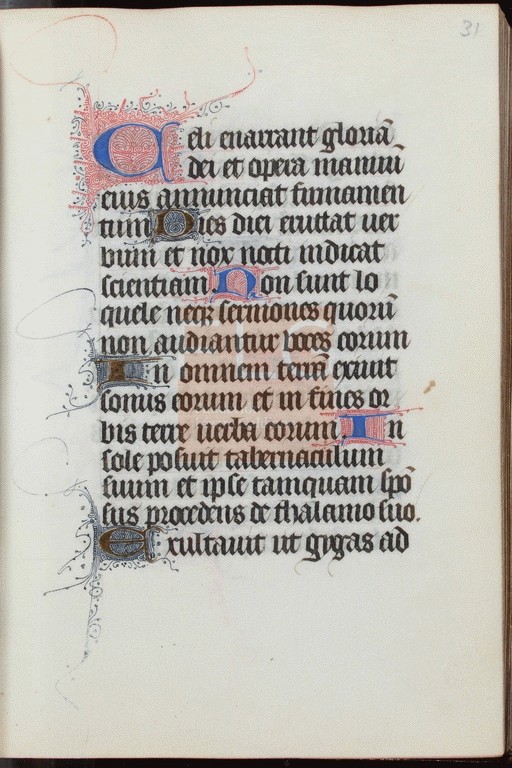 31
Celi enarrant gloriā
dei et opera manuū
eius annunciat firmamen
tum Dies diei eructat ver
bum et nox nocti indicat
scientiam Non sunt lo
quele neqz sermones quorū
non audiantur voces eorum
In omnem terrā exiuit
sonus eorum et in fines or
bis terre uerba eorum In
sole posuit tabernaculum
suum et ipse tamquam spō
sus procedens de thalamo suo.
Exultauit ut gygas ad